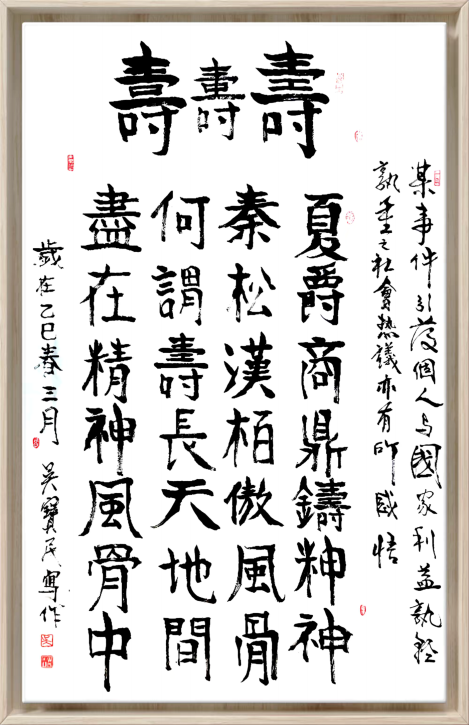 壽壽壽
某事件引發個人与國家利益孰輕
孰重之社會热議亦有所感悟
夏爵商鼎鑄精神
秦松漢柏傲風骨
何謂壽長天地間
盡在精神風骨中
歲在乙巳春三月 吳寶民寫作